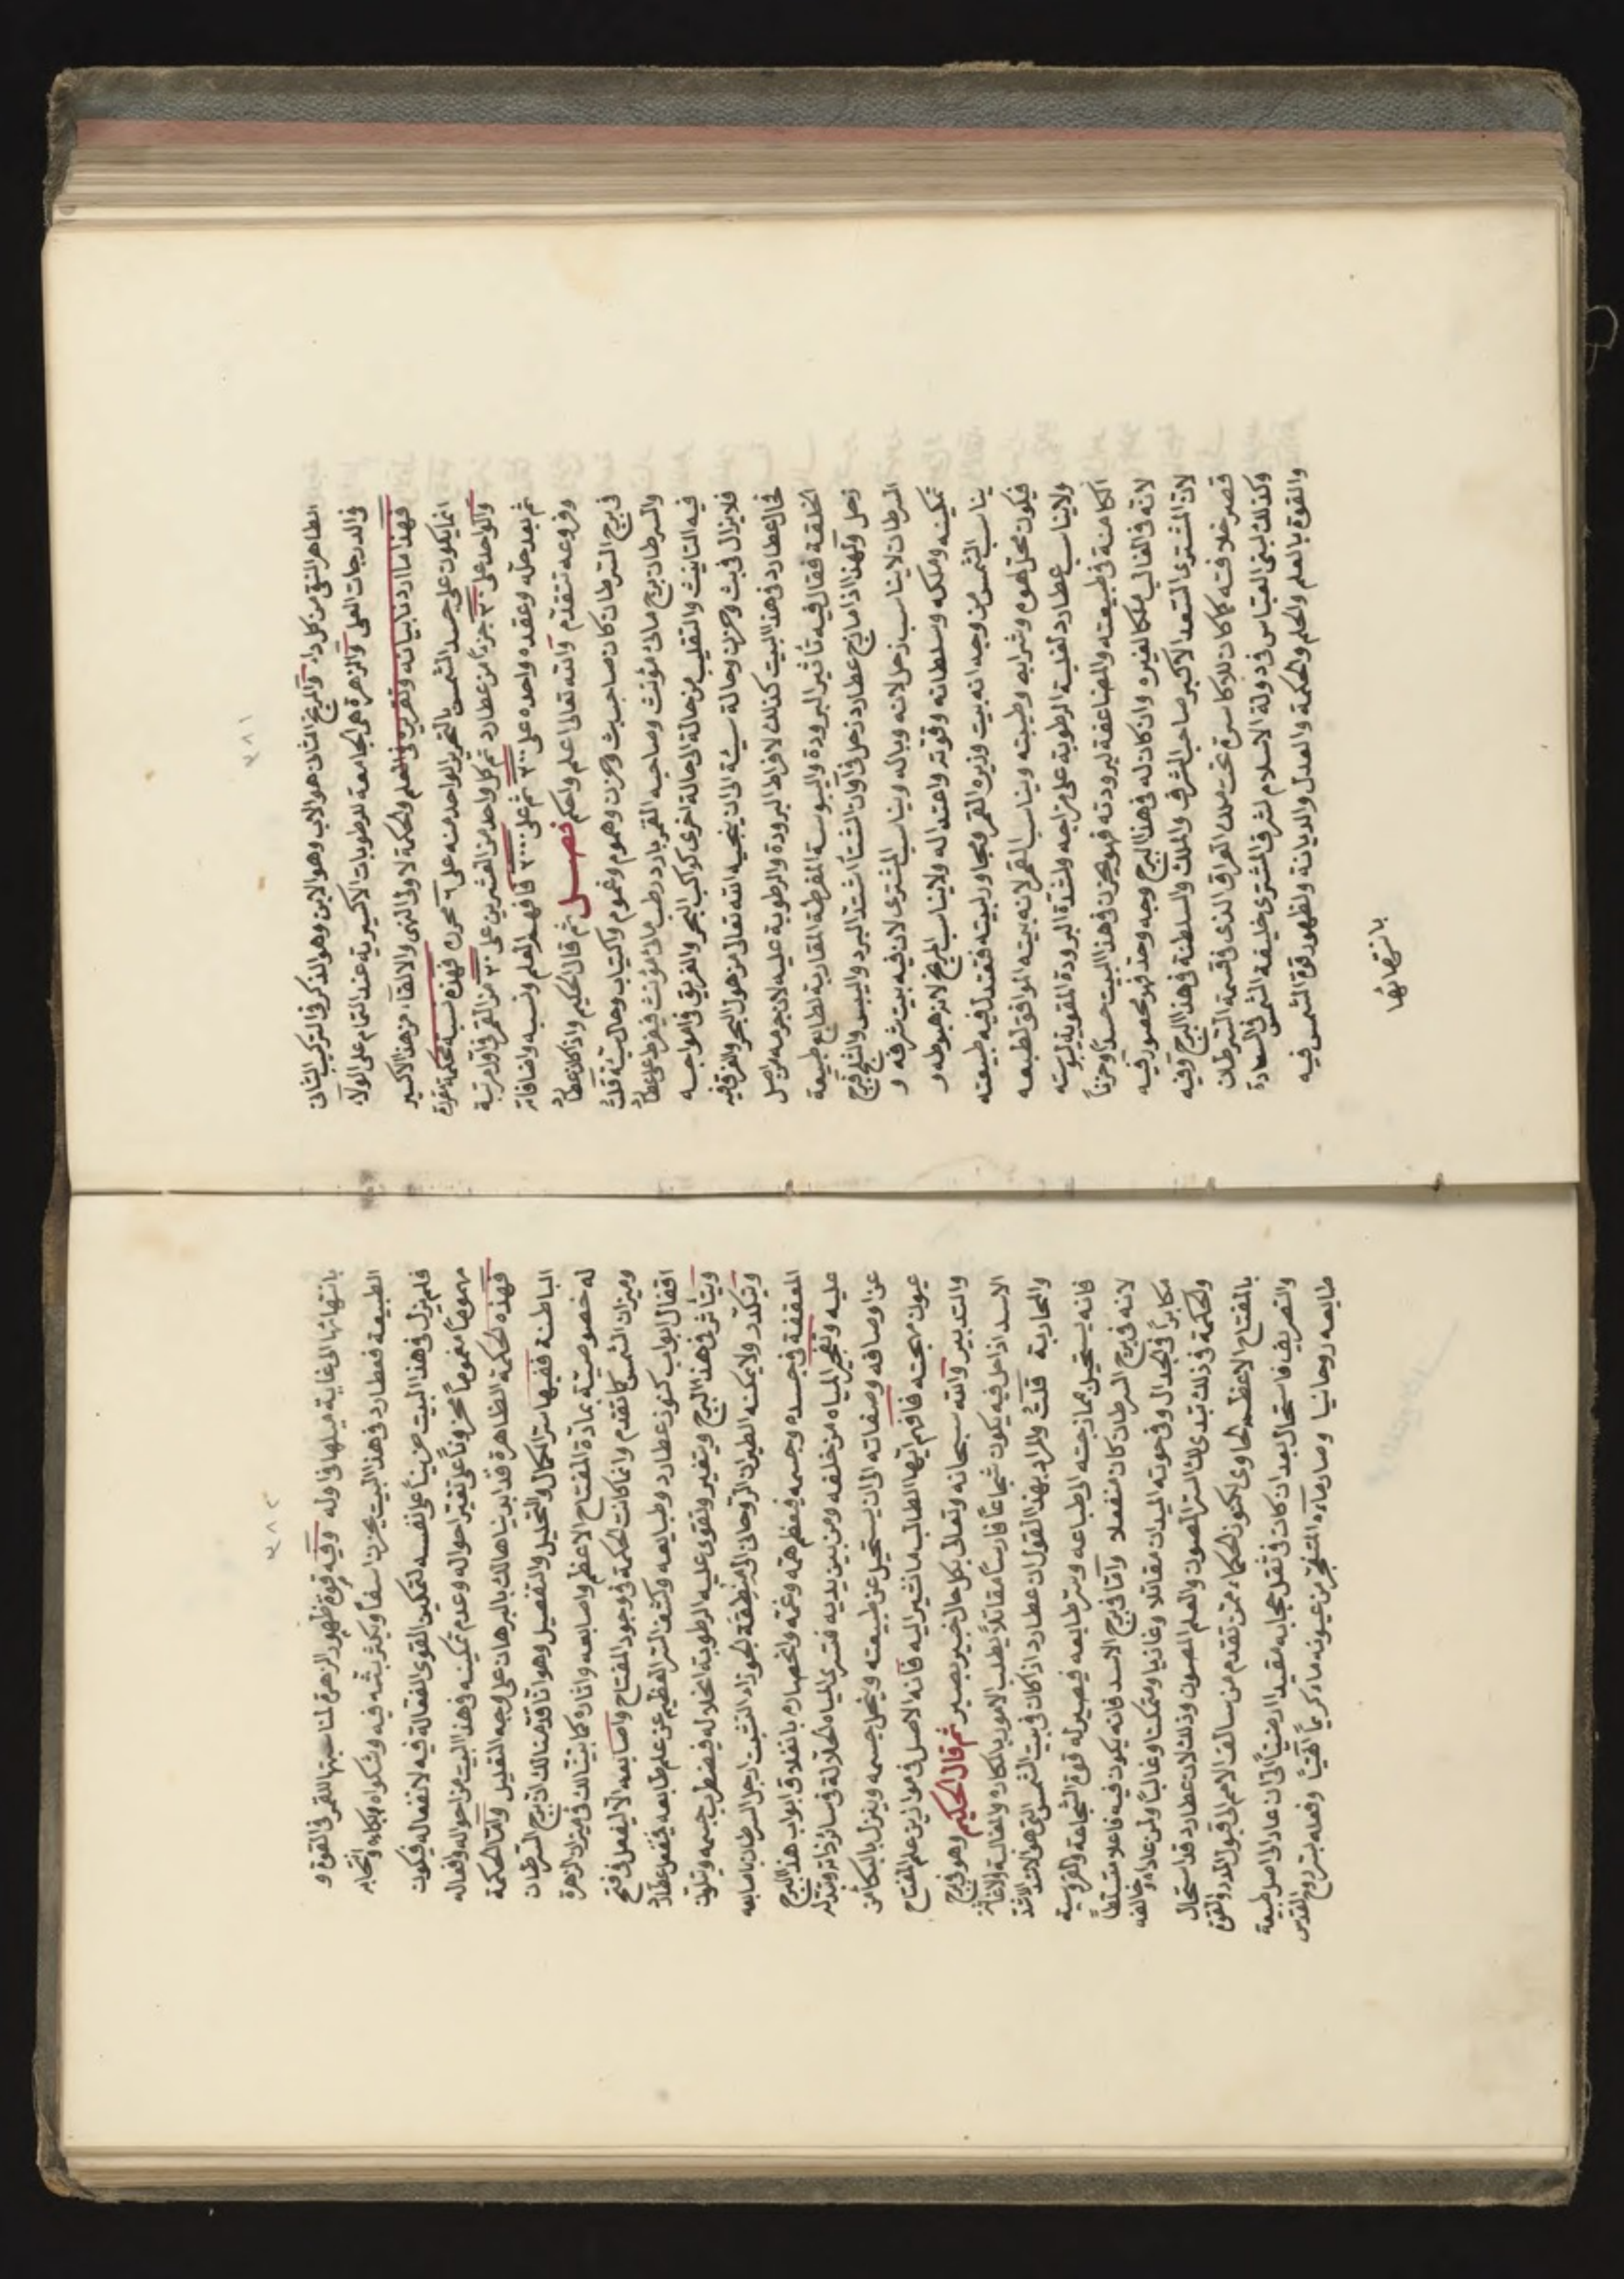 ٣٨١
الطاهر النقي من كل داء والمريخ الثاني هو الاب وهو الابن وهو الذكر في التركيب الثاني
في الدرجات العلى والزهرة هي الجامعة للرطوبات الاكسيرية عند التمام على الولاء
فهذا ما اردنا بيانه وتقريره في العلم والحكمة لاولى النهى والالقاء من هذا الاكسير
انما يكون على جسد الشمس بالتحرير الواحد منه على ٦٠ فهذه نسبة محكمة مقررة
والواحد على ٣٠ جزءا من عطارد ثم كل واحد من العشرين على ٢٠ من القمر في آول مرتبة
ثم بعد حله وعقده واحده على ٢٠٠ ثم على ٢٠٠٠ فافهم العلم ونسبه واضافاته
وفروعه تتقدم والله تعالى اعلم واحكم فصل ثم قال الحكيم واذا كان عطارد
في برج السرطان كان صاحب بث وحزن وهموم وغموم واكتئاب وحال سيئة قلت
والسرطان برج مائي مؤنث وصاحبه القمر بارد رطب مائي مؤنث فيفرط على عطارد
فيه التانيث والتقلب من حالة الى حالة اخرى كراكب البحر والغريق في امواجه
فلا يزال في بث وحزن وحالة سيئة الى ان ينجيه الله تعالى من هول البحر والغرق فيه
فحال عطارد في هذا البيت كذلك لافراط البرودة والرطوبة عليه لان جرمه من اصل
الخلقة فقال فيه تأثير البرودة واليبوسة المفرطة المقاربة لطابع طبيعة
زحل ولهذا اذا مازج عطارد زحل في آوان الشتاء اشتد البرد واليبس والثلج وبرج
السرطان لا يناسب زحل لانه وباله ويناسب المشتري لان فيه بيت شرفه و
تمكينه وملكه وسلطانه وقوته واعتداله ولا يناسب المريخ لانه هبوطه و
يناسب الشمس من وجه انه بيت وزيره القمر ومجاور لبيته فتعتدل فيه طبيعته
فيكون محل لهوه وشرابه وطيبته ويناسب القمر لانه بيته الموافق لطبعه
ولا يناسب عطارد لغلبة الرطوبة على مزاجه ولشدة البرودة المقوية ليبوسته
الكامنة في طبيعته والمضاعفة لبرودته فهو يحزن في هذا البيت حسدا وحزنا
لانه في الغالب ملكا لغيره وان كان له في هذا البرج وجه وحد فهو محصور فيه
لان المشتري السعد الاكبر صاحب الشرف والملك والسلطنة في هذا البرج وفيه
قصر خلافته كما كان للاكاسرة تحت ملك العراق الذي في قسمة السرطان
وكذلك لبنى العباس في دولة الاسلام لشرف المشتري خليفة الشمس في السعادة
والقوة بالعلم والحلم والحكمة والعدل والديانة ولظهور قوة الشمس فيه
بانتهائها
٣٨٢
بانتهائها الى غاية ميلها في اوله وفيه قوة ظهور الزهرة لمناسبتها للقمر في القوة و
الطبيعة فعطارد في هذا البيت يحزن اسفا ويكثر بثه فيه وشكواه وبكاءه وانتحابه
فلم يزل في هذا البيت حزينا على نفسه لتمكين القوى الفعالة فيه لانفعاله فيكون
مهموما مغموما محزونا على تغير احواله وعدم تمكينه في هذا البيت من احواله وافعاله
فهذه الحكمة الظاهرة قد ابديناها لك بالبرهان على وجه التقليل واما الحكمة
الباطنة ففيها سر الكمال والتحليل والتفصيل وهو انا قدمنا لك ان برج السرطان
له خصوصية بمادة المفتاح الاعظم واصابعه واثاره كما بينا لك في ميزان الزهرة
وميزان الشمس كما تقدم وانما كانت الحكمة في وجود المفتاح واصابعه الا ليفعل في فتح
اقفال ابواب كنوز عطارد وطبايعه وكشف الستر العظيم عن علم طابعه فينفعل عطارد
ويتأثر في هذا البرج ويتغير وتقوى عليه الرطوبة المحللة له فيضطرب جسمه ويتلون
ويتكدر ولا يمكنه الطيران الروحاني الى منطقة الجوزاء لتشبث ارجل السرطان باصابعه
المعقفة في جسده وجسمه فيعظم همه وغمه وانحصاره بانغلاق ابواب هذا البرج
عليه وتفجير المياه من خلفه ومن بين يديه فتسرى المياه الحلالة في سائر ذاته وتنزله
عن اوصافه وصفاته الى ان يستحيل عن طبيعته وينحل جسمه وينزل بالبكا من
عيون مهجته فافهم ايها الطالب ما نشير اليه فانه الاصل في موازين علم المفتاح
والتدبير والله سبحانه وتعالى بكل حال خبير بصير ثم قال الحكيم وهو في برج
الاسد اذا حل فيه يكون شجاعا فارسا مقاتلا يطلب الامور بالمكابرة والمغالبة والاغاثة
والمحاربة قلت والمراد بهذا القول ان عطارد اذا كان في بيت الشمس التي هو الاسد
فانه يستحيل بممازجته الى طباعه وسر طابعه فيصير له قوة الشجاعة والفروسية
لانه في برج السرطان كان منفعلا واما في برج الاسد فانه يكون فيه فاعلا متسلطا
مكابرا في الجدال وفي حومة الميدان مقاتلا وغانيا ومتمكنا وغالبا ولمن عاداه وخالفه
والحكمة في ذلك تبدى لك السر المصون والعلم المصون وذلك لان عطارد قد استحال
بالمفتاح الاعظم الحاوى لكنوز الحكماء ممن تقدم من سالف الامم الى قبول المدد والقوة
والتصريف فاستحال بعد ان كان في ثقل حجابه مقيد ارضيا الى ان عاد الى اصل طبيعة
طابعه روحانيا وصار ماءه المتفجر من عيونه ماء كريما نقيا وفعله بسر روح القدس